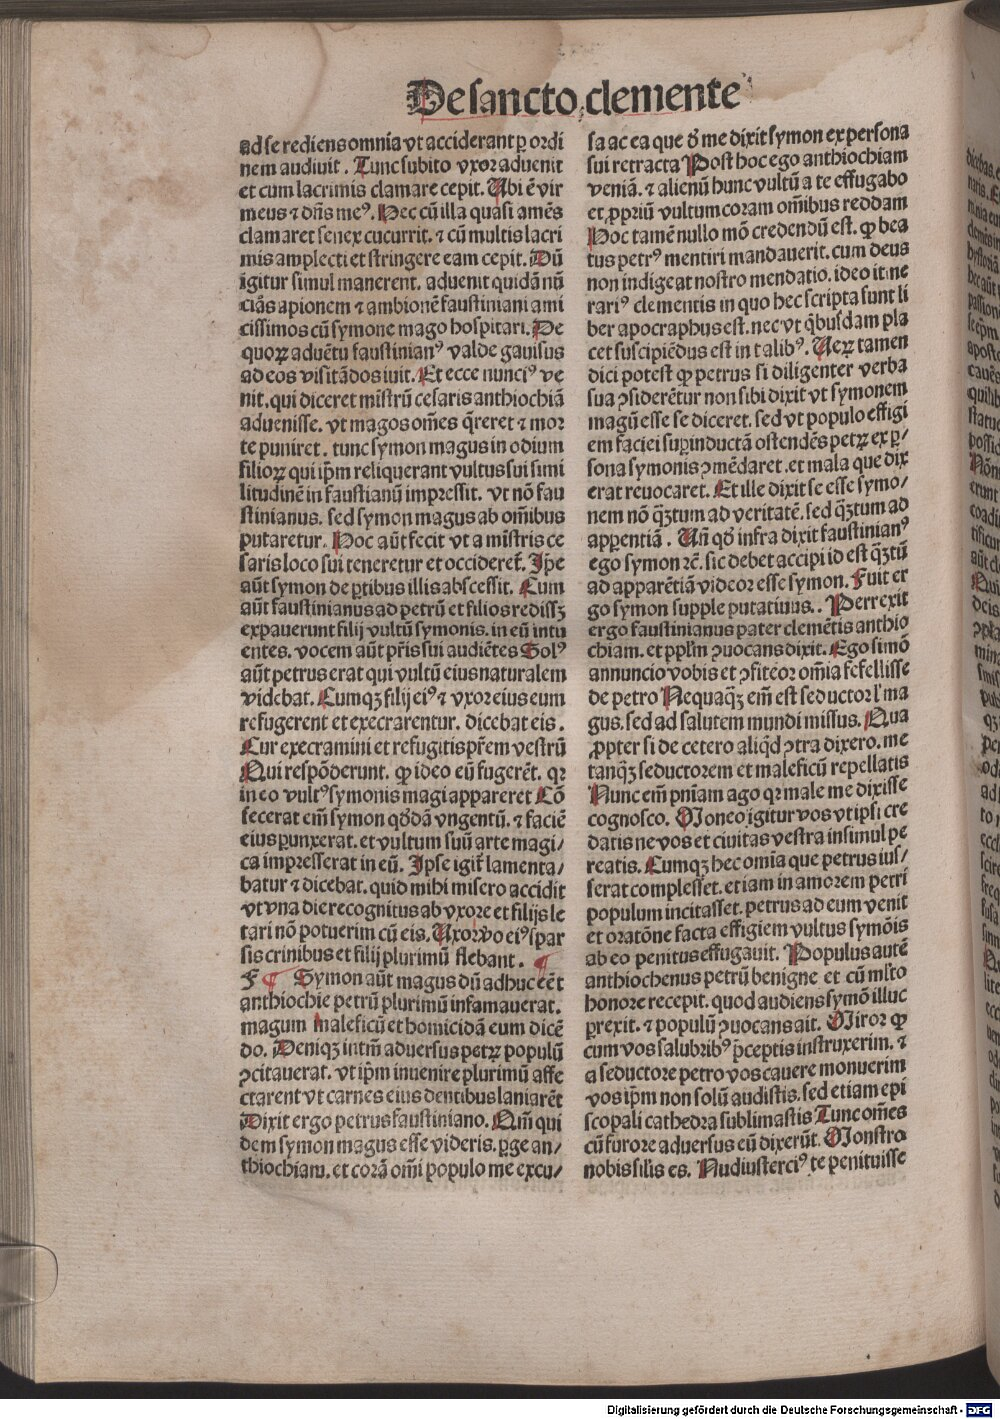 De sancto clemente
ad se rediens omnia vt acciderant ꝑ ordi
nem audiuit. Tunc subito vxor aduenit
et cum lacrimis clamare cepit. Ubi ē vir
meus ⁊ dn̄s meꝰ. Hec cū illa quasi amēs
clamaret senex cucurrit. ⁊ cū multis lacri
mis amplecti et stringere eam cepit. Dū
igitur simul manerent. aduenit quidā nū
ciās apionem ⁊ ambionē faustiniani ami
cissimos cū symone mago hospitari. De
quoꝝ aduētu faustinianꝰ valde gauisus
ad eos visitādos iuit. Et ecce nunciꝰ ve
nit. qui diceret mīstrū cesaris anthiochiā
aduenisse. vt magos om̄es q̄reret ⁊ mor
te puniret. tunc symon magus in odium
filioꝝ qui ip̄m reliquerant vultus sui simi
litudinē in faustianū impressit. vt nō fau
stinianus. sed symon magus ab om̄ibus
putaretur. Hoc aūt fecit vt a mīstris ce
saris loco sui teneretur et occideret̄. Ip̄e
aūt symon de ꝑtibus illis abscessit. Cum
aūt faustinianus ad petrū et filios redissꝫ
expauerunt filij vultū symonis. in eū intu
entes. vocem aūt pr̄is sui audiētes Solꝰ
aūt petrus erat qui vultū eius naturalem
videbat. Cumqꝫ filij eiꝰ ⁊ vxor eius eum
refugerent et execrarentur. dicebat eis.
Cur execramini et refugitis pr̄em vestrū
Qui respōderunt. ꝙ ideo eū fugerēt. qꝛ
in eo vultꝰ symonis magi appareret Cō
fecerat em̄ symon qd̄dā vngentū. ⁊ faciē
eius ꝑunxerat. et vultum suū arte magi/
ca impresserat in eū. Ipse igit̄ lamenta/
batur ⁊ dicebat. quid mihi misero accidit
vt vna die recognitus ab vxore et filijs le
tari nō potuerim cū eis. Uxor v̄o eiꝰ spar
sis crinibus et filij plurimū flebant. ¶
F ¶ Symon aūt magus dū adhuc eēt
anthiochie petrū plurimū infamauerat.
magum maleficū et homicidā eum dicē
do. Deniqꝫ intm̄ aduersus petꝝ populū
ꝯcitauerat. vt ip̄m inuenire plurimū affe
ctarent vt carnes eius dentibus laniarēt
Dixit ergo petrus faustiniano. Qm̄ qui
dem symon magus esse videris. ꝑge an/
thiochiam. et corā om̄i populo me excu/
sa ac ea que d̄ me dixit symon ex persona
sui retracta Post hoc ego anthiochiam
veniā. ⁊ alienū hunc vultū a te effugabo
et ꝓpriū vultum coram om̄ibus reddam
Hoc tamē nullo mō credendū est. ꝙ bea
tus petrꝰ mentiri mandauerit. cum deus
non indigeat nostro mendatio. ideo itine
rariꝰ clementis in quo hec scripta sunt li
ber apocraphus est. nec vt q̄busdam pla
cet suscipiēdus est in talibꝰ. Ueꝝ tamen
dici potest ꝙ petrus si diligenter verba
sua ꝯsiderētur non sibi dixit vt symonem
magū esse se diceret. sed vt populo effigi
em faciei suꝑinductā ostendēs petꝝ ex ꝑ/
sona symonis ꝯmēdaret. et mala que dix
erat reuocaret. Et ille dixit se esse symo/
nem nō q̄ꝫtum ad veritatē. sed q̄ꝫtum ad
apꝑentiā. Un̄ qd̄ infra dixit faustinianꝰ
ego symon rc̄. sic debet accipi id est q̄ꝫtū
ad apparētiā videor esse symon. Fuit er
go symon supple putatiuus.. Perrexit
ergo faustinianus pater clemētis anthio
chiam. et ppl̄m ꝯuocans dixit. Ego simō
annuncio vobis et ꝯfiteor om̄ia fefellisse
de petro Nequaq̄ꝫ em̄ est seductor l' ma
gus. sed ad salutem mundi missus. Qua
ꝓpter si de cetero aliq̄d ꝯtra dixero. me
tanq̄ꝫ seductorem et maleficū repellatis
Nunc em̄ pn̄iam ago qꝛ male me dixisse
cognosco. Moneo igitur vos vt ipsi cre
datis ne vos et ciuitas vestra insimul pe
reatis. Cumqꝫ hec om̄ia que petrus ius/
serat complesset. et iam in amorem petri
populum incitasset. petrus ad eum venit
et oratōne facta effigiem vultus symōis
ab eo penitus effugauit. Populus autē
anthiochenus petrū benigne et cū ml̄to
honore recepit. quod audiens symō illuc
ꝑrexit. ⁊ populū ꝯuocans ait. Miror ꝙ
cum vos salubribꝰ p̄ceptis instruxerim. ⁊
a seductore petro vos cauere monuerim
vos ip̄m non solū audistis. sed etiam epi
scopali cathedra sublimastis Tunc om̄es
cū furore aduersus eū dixerūt. Monstro
nobis sil̄is es. Nudiusterciꝰ te penituisse
Digitalisierung gefördert durch die Deutsche Forschungsgemeinschaft - DFG